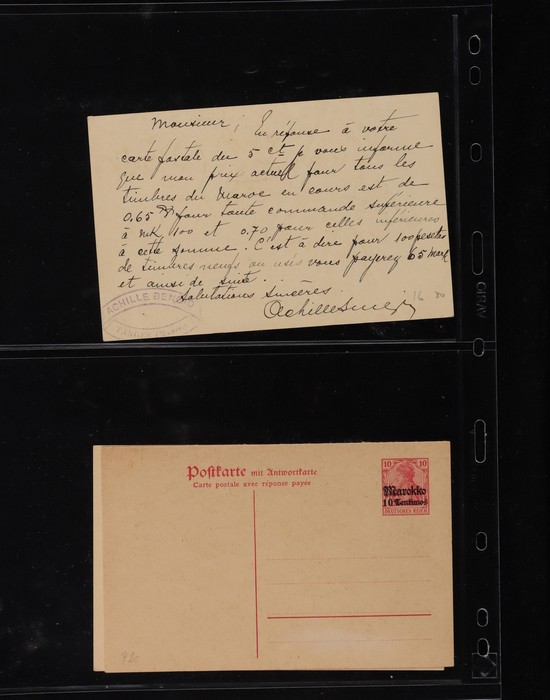 Monsieur, En réponse à votre
carte postale du 5 ct je vous informe
que mon prix actuel pour tous les
timbres du Maroc en cours est de
0,65 pour toute commande supérieure
à mk 100 et 0.70 pour celles inférieures
à cette somme. C'est à dire pour 100 pesetas
de timbres neufs ou usés vous payerez 65 Mark
et ainsi de suite.
Salutations Sincères
ACHILLE
16
Postkarte mit Antwortkarte
Carte postale avec réponse payée
10 10
Marokko
10 Centimos
DEUTSCHES REICH